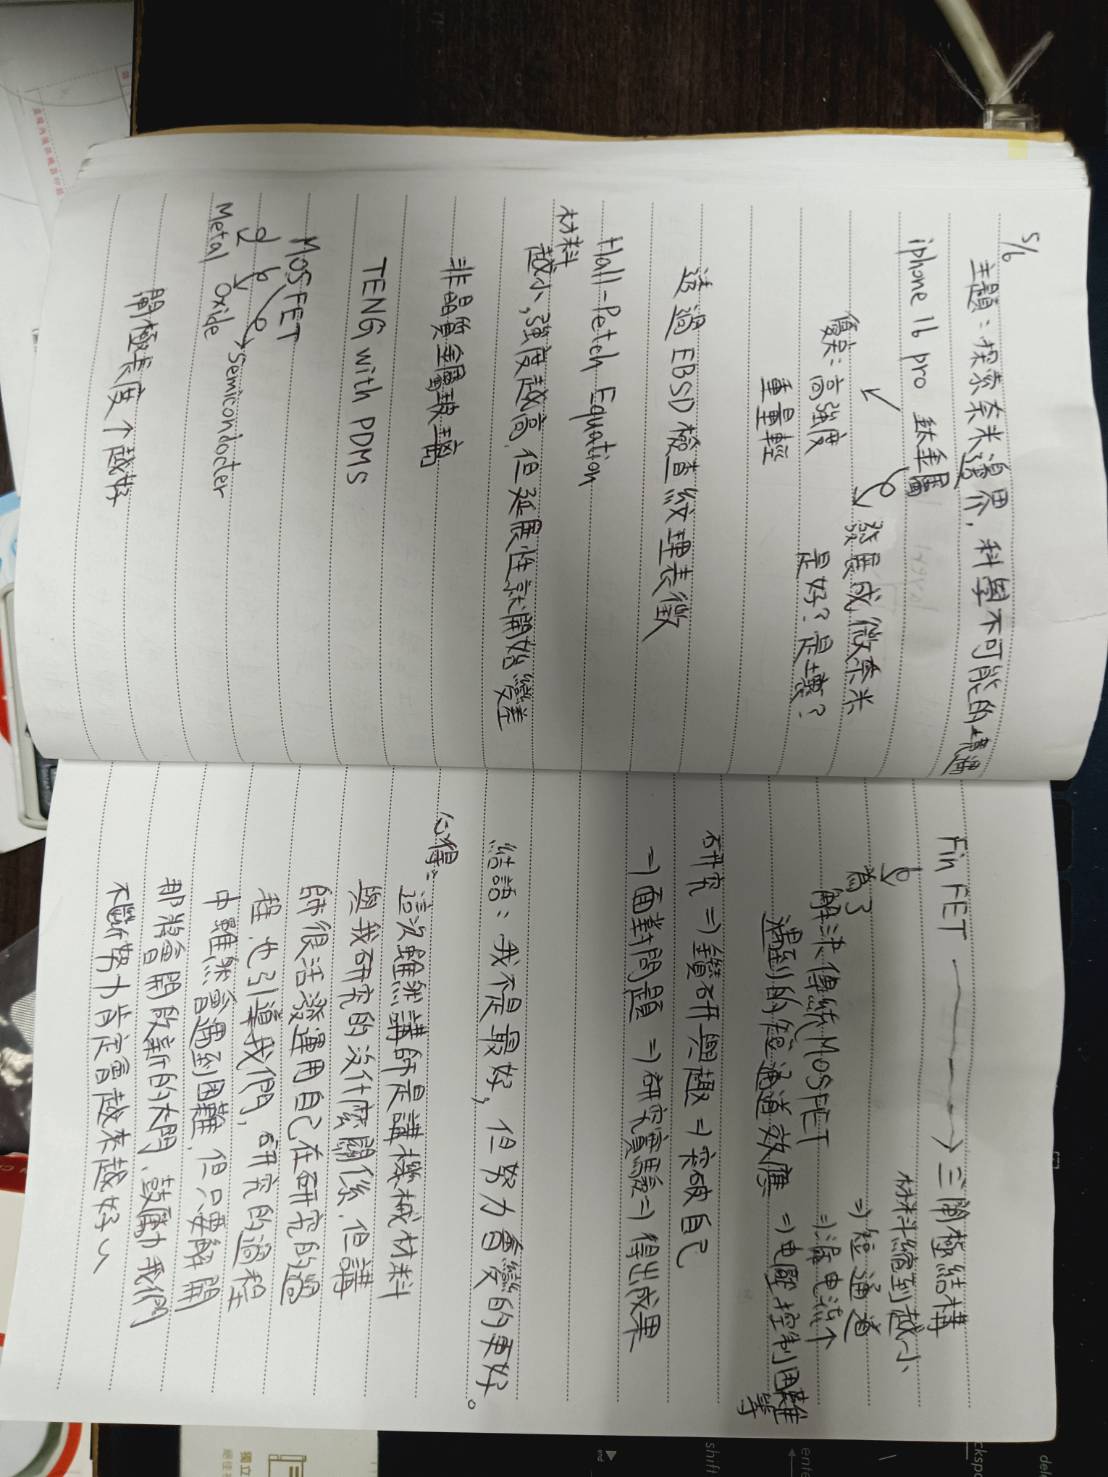 5/6
主題：探索奈米邊界，科學不可能的境遇
iphone 16 pro 鈦金屬
優点：高強度
重量輕
發展成微奈米
是好？是壞？
透過EBSD檢查紋理表徵
Hall-Petch Equation
材料
越小，強度越高，但延展性就開始變差
非晶質金屬玻璃
TENG with PDMS
MOSFET
Semiconducter
Metal Oxide
閘極長度个越好
Fin FET → 三閘極結構
材料縮到越小
為了
解決傳統MOSFET ⇒短通道
遇到的短通道效應 ⇒漏电流个
⇒电壓控制困難等
研究⇒鑽研興趣⇒突破自己
⇒面對問題⇒研究實驗⇒得出成果
結語：我不是最好，但努力會變的更好。
心得：這次雖然講師是講機械材料
與我研究的沒什麼關係，但講
師很活潑運用自己在研究的過
程，也引導我們，研究的過程
中雖然會遇到困難，但只要解開
那將會開啟新的大門，鼓勵我們
不斷努力肯定會越來越好～
shift
enter
end